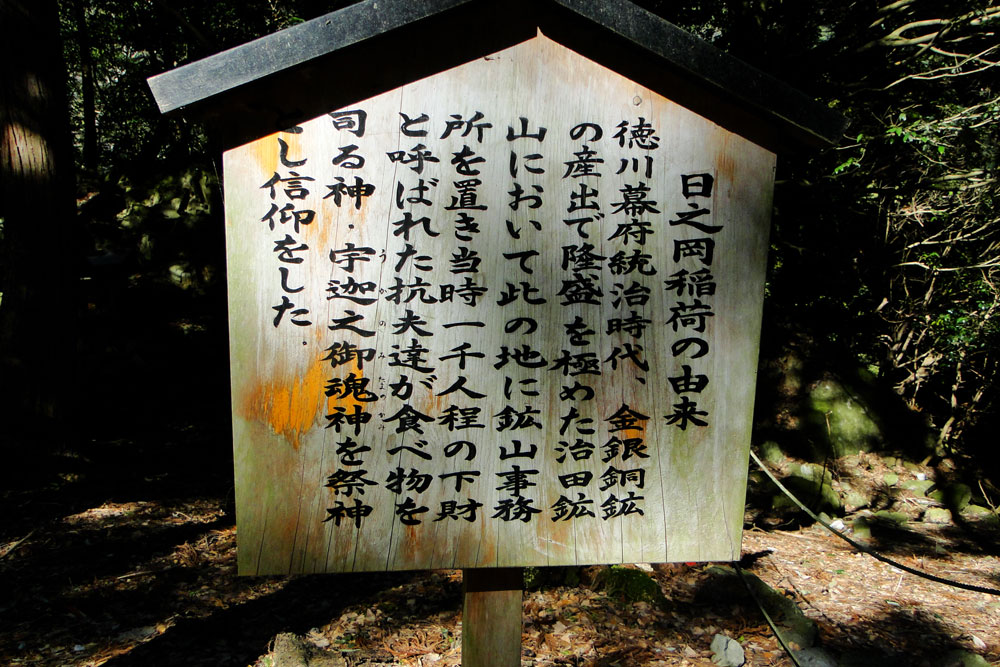 日之岡稲荷の由来
徳川幕府統治時代、金銀銅鉱
の産出で隆盛を極めた治田鉱
山において此の地に鉱山事務
所を置き当時一千人程の下財
と呼ばれた抗夫達が食べ物を
司る神・宇迦之御魂神を祭神
うかのみたまのかみ
とし信仰をした.